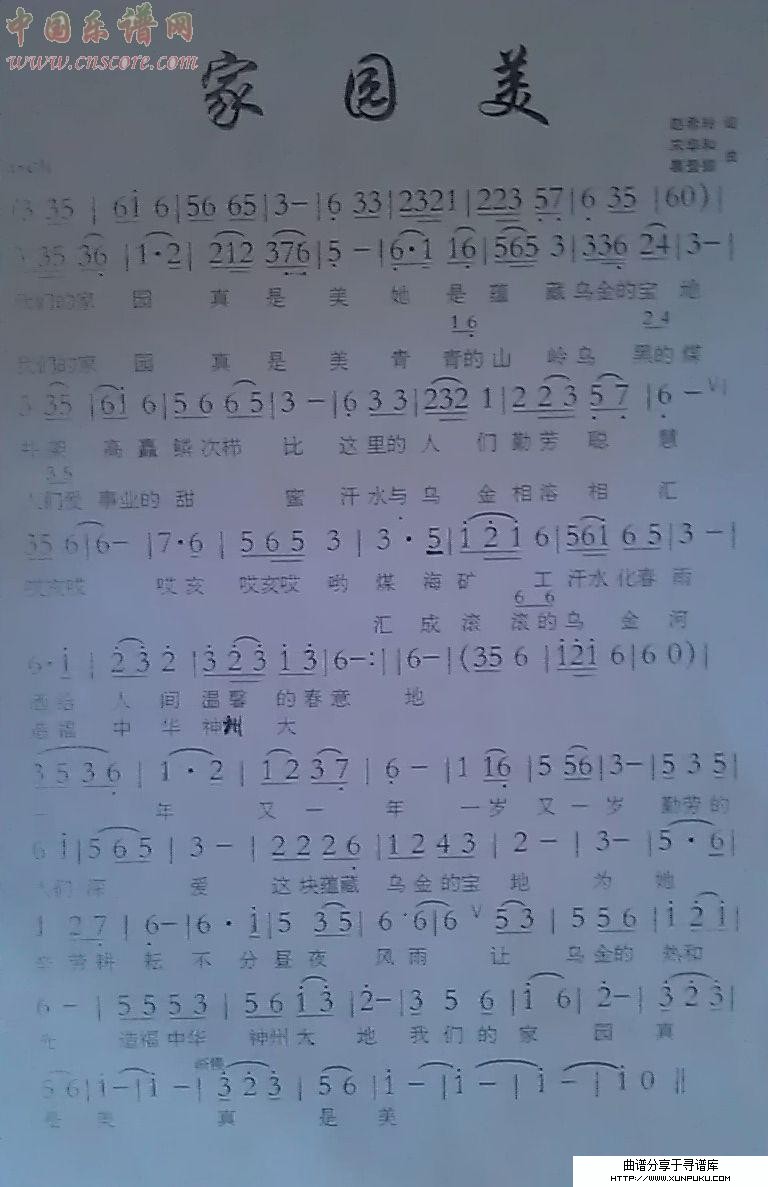 中国乐谱网
www.cnscore.com
家园美
(3 35 | 61 6 | 56 65 | 3 - | 6 33 | 2321 | 223 57 | 6 35 | 60) |
35 36 | 1·2 | 212 376 | 5 - | 6·1 16 | 565 3 | 336 24 | 3 - |
我们的家 园 真 是 美 她 是 蕴 藏 乌金的宝 地
16 24
我们的家 园 真 是 美 青 青的山 岭乌 黑的煤
35 | 61 6 | 56 65 | 3 - | 6 33 | 232 1 | 2 23 57 | 6 - V |
井架 高矗鳞次栉 比 这里的人 们勤劳聪 慧
35
人们爱 事业的甜 蜜 汗水与乌 金相溶相 汇
35 6 | 6 - | 7·6 | 565 3 | 3·5 | 121 6 | 561 65 | 3 - |
哎亥哎 哎亥 哎亥哎 哟 煤 海矿 工 汗水化春雨
6 6
汇 成 滚 滚的乌 金 河
6·1 | 23 2 | 323 13 | 6 - :| | 6 - | (35 6 | 121 6 | 6 0) |
洒给 人 间 温馨 的春意 地
造福 中 华 神州 大
3536 | 1·2 | 12 37 | 6 - | 1 16 | 5 56 | 3 - | 5 35 |
一 年 又 一 年 一岁 又 一 岁 勤劳的
6 1 | 5 65 | 3 - | 2226 | 1243 | 2 - | 3 - | 5·6 |
人们 深 爱 这块蕴藏 乌金的宝 地 为 她
1 27 | 6 - | 6·1 | 5 35 | 6·6 | 6 V 53 | 5 56 | 1 21 |
辛劳耕 耘 不 分昼夜 风雨 让 乌金的 热和
6 - | 5553 | 56 13 | 2 - | 3 5 6 | 1 6 | 2 - | 323 |
光 造福中华 神州大 地 我们的 家 园 真
56 | 1 - | 1 - | 323 | 56 | 1 - | 1 - | 1 - | 1 0 ||
是 美 真 是 美
曲谱分享于寻谱库
HTTP://WWW.XUNPUKU.COM